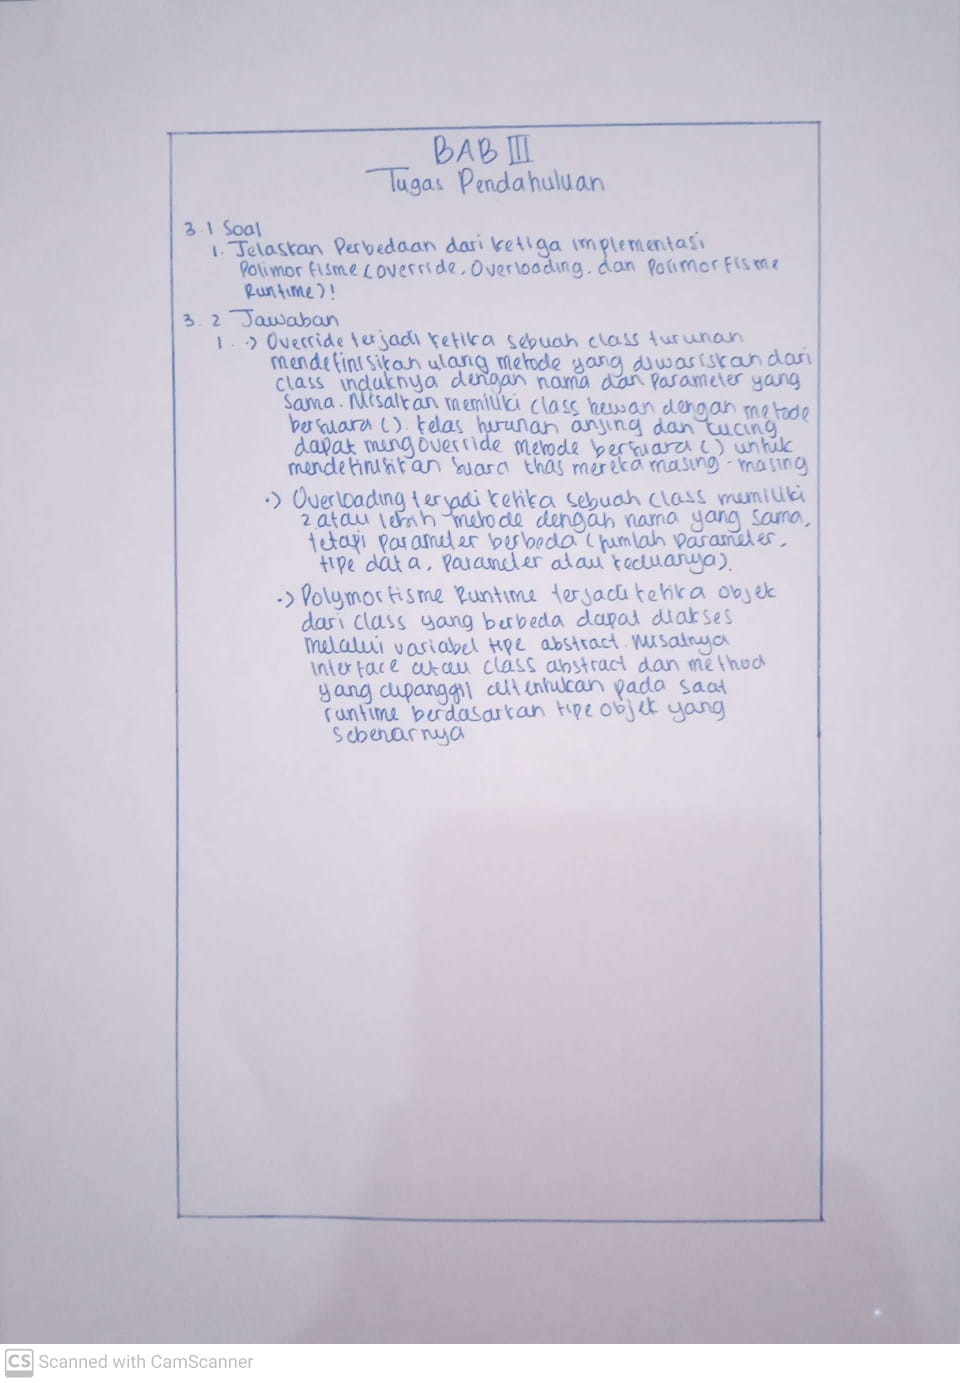 BAB III
Tugas Pendahuluan
3.1 Soal
1. Jelaskan Perbedaan dari ketiga implementasi
Polimorfisme (override, Overloading, dan Polimorfisme
Runtime)!
3.2 Jawaban
1. •) Override terjadi ketika sebuah class turunan
mendefinisikan ulang metode yang diwariskan dari
class induknya dengan nama dan parameter yang
sama. Misalkan memiliki class hewan dengan metode
bersuara (). kelas turunan anjing dan kucing
dapat mengoverride metode bersuara () untuk
mendefinisikan suara khas mereka masing-masing
•) Overloading terjadi ketika sebuah class memiliki
2 atau lebih metode dengan nama yang sama,
tetapi parameter berbeda (jumlah parameter,
tipe data, parameter atau keduanya).
•) Polymorfisme Runtime terjadi ketika objek
dari class yang berbeda dapat diakses
melalui variabel tipe abstract. Misalnya
interface atau class abstract dan method
yang dipanggil ditentukan pada saat
runtime berdasarkan tipe objek yang
sebenarnya
CS Scanned with CamScanner